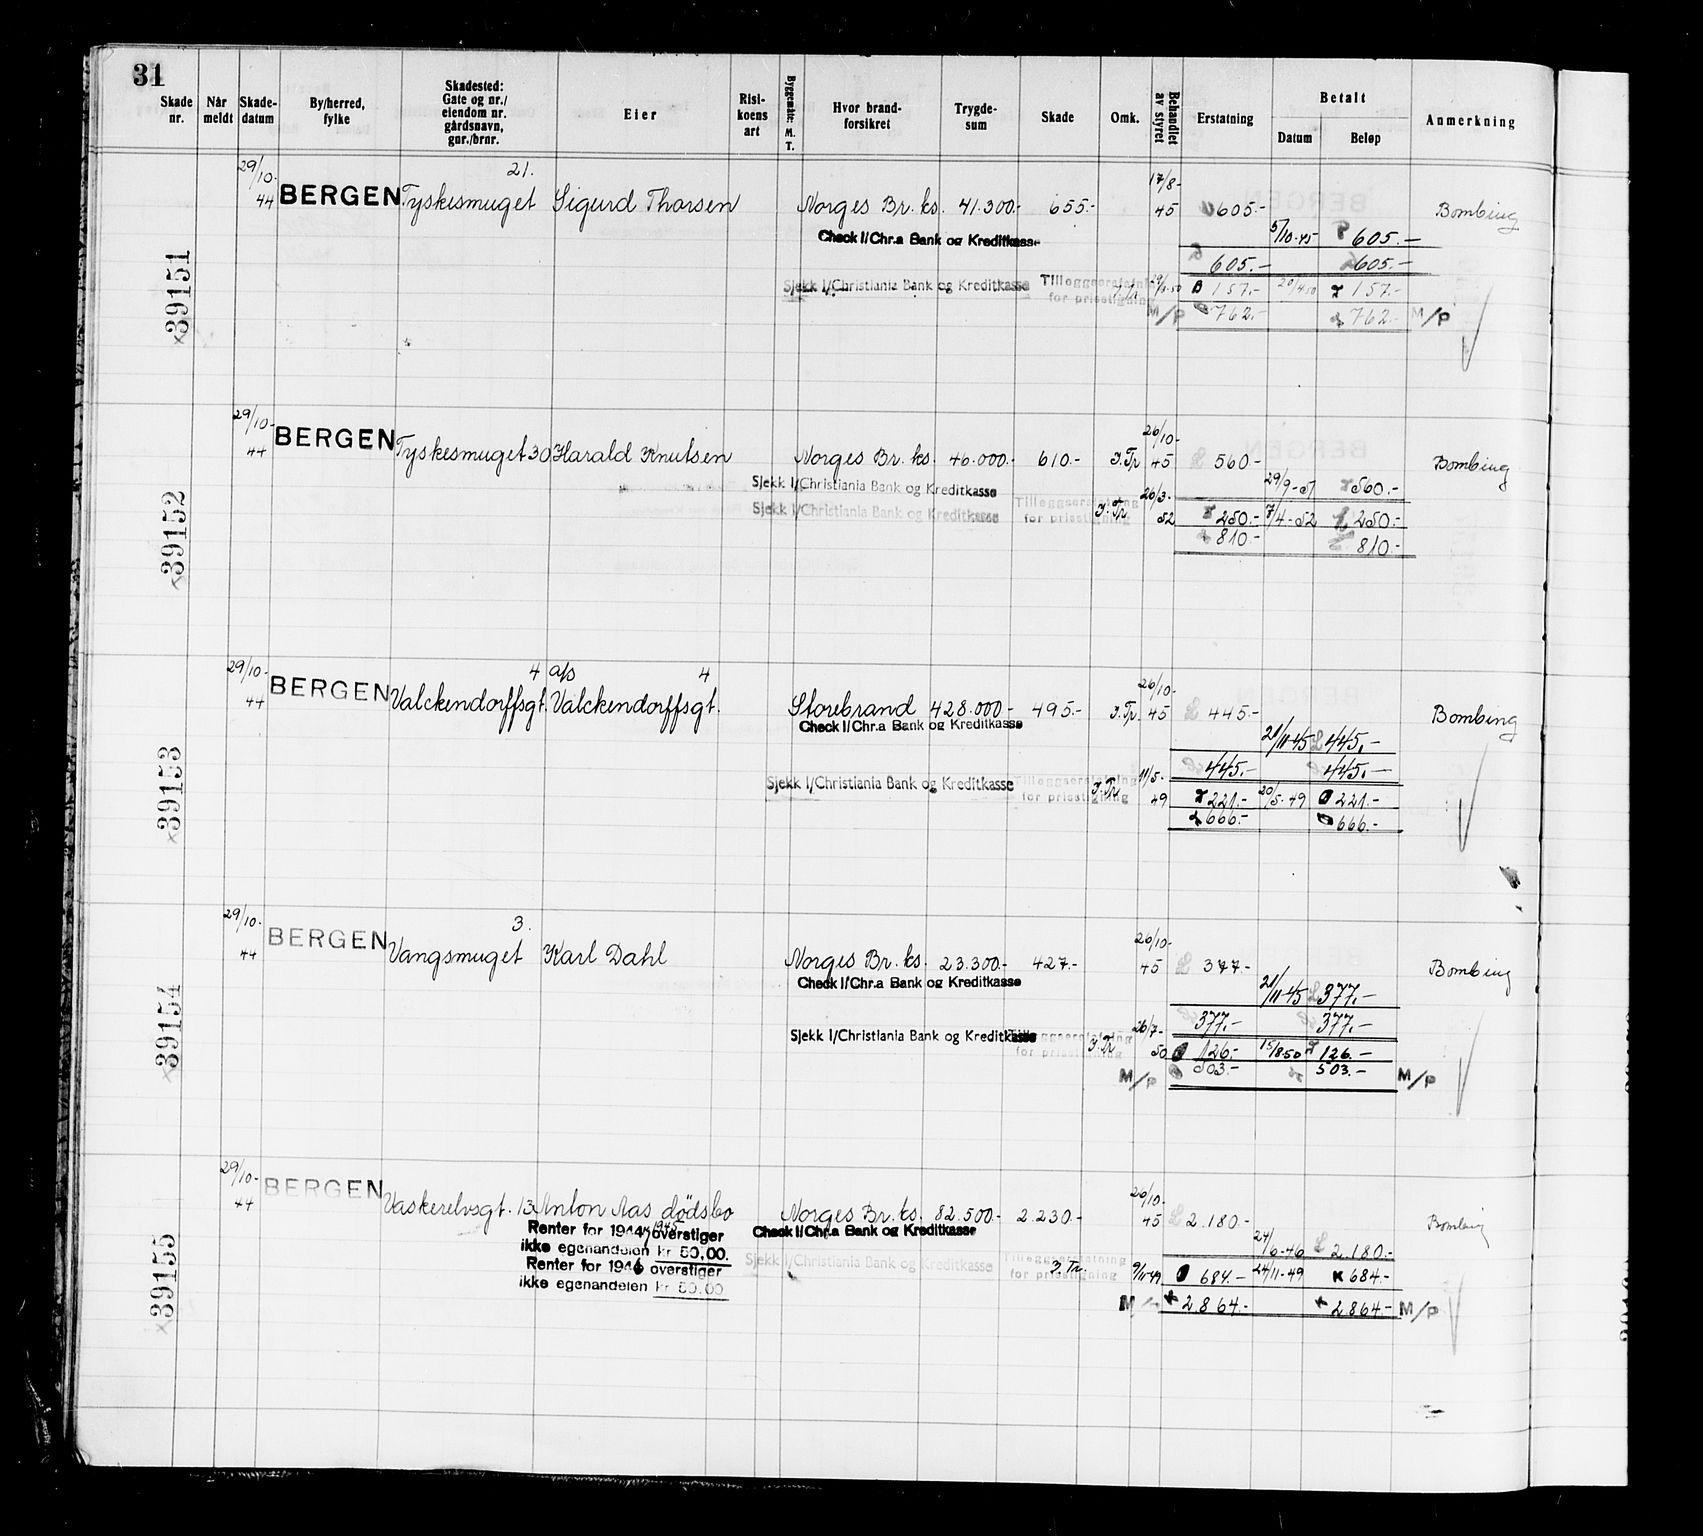 31
Skade nr.
Når meldt
Skade-datum
By/herred, fylke
Skadested: Gate og nr./ eiendom nr. gårdsnavn, gnr./brnr.
Eier
Risi-koens art
Byggemåte: M. T.
Hvor brand-forsikret
Trygde-sum
Skade
Omk.
Behandlet av styret
Erstatning
Betalt
Datum
Beløp
Anmerkning
39151
29/10- 21. 17/8-
44 BERGEN Tyskesmuget Sigurd Thorsen Norges Br. ks. 41.300.- 655.- 45 605.- Bombing
Check l/Chr.a Bank og Kreditkasse 5/10-45 605.-
605.- 605.-
Sjekk l/Christiania Bank og Kreditkasse Tilleggserstatning for prisstigning 157.- 20/4.50 157.-
M/P 762.- 762.- M/P
39152
29/10- 26/10-
44 BERGEN Tyskesmuget 30 Harald Knutsen Norges Br. ks. 46.000.- 610.- J.Tr. 45 560.- Bombing
Sjekk l/Christiania Bank og Kreditkasse 29/9-51 560.-
Sjekk l/Christiania Bank og Kreditkasse Tilleggserstatning for prisstigning J.Tr. 26/3-52 250.- 7/4-52 250.-
810.- 810.-
39153
29/10- 4 a/s 4 26/10-
44 BERGEN Valckendorffsgt. Valckendorffsgt. Storebrand 428.000.- 495.- J.Tr. 45 445.- Bombing
Check l/Chr.a Bank og Kreditkasse 21/11-45 445.-
445.- 445.-
Sjekk l/Christiania Bank og Kreditkasse Tilleggserstatning for prisstigning J.Tr. 11/5-49 221.- 20/5-49 221.-
666.- 666.-
39154
29/10- 3. 26/10-
44 BERGEN Vangsmuget Karl Dahl Norges Br. ks. 23.300.- 427.- 45 377.- Bombing
Check l/Chr.a Bank og Kreditkasse 21/11-45 377.-
377.- 377.-
Sjekk l/Christiania Bank og Kreditkasse Tilleggserstatning for prisstigning J.Tr. 26/7-50 126.- 15/8-50 126.-
M/P 503.- 503.- M/P
39155
29/10- 26/10-
44 BERGEN Vaskerelvsgt. 13 Anton Aas dödsbo Norges Br. ks. 82.500.- 2.230.- 45 2.180.- Bombing
Renter for 1944/1945 overstiger Check l/Chr.a Bank og Kreditkasse
ikke egenandelen kr 50,00. 24/6-46 2.180.-
Renter for 1946 overstiger Sjekk l/Christiania Bank og Kreditkasse Tilleggserstatning for prisstigning J.Tr. 9/11-49 684.- 24/11-49 684.-
ikke egenandelen kr 50,00
M 2.864.- 2.864.- M/P